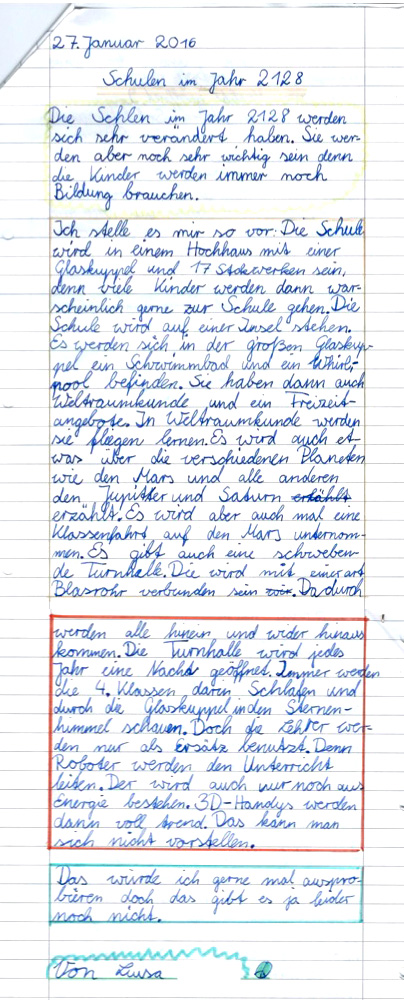 27. Januar 2016
Schulen im Jahr 2128
Die Schlen im Jahr 2128 werden
sich sehr verändert haben. Sie wer-
den aber noch sehr wichtig sein denn
die Kinder werden immer noch
Bildung brauchen.
Ich stelle es mir so vor: Die Schule
wird in einem Hochhaus mit einer
Glaskuppel und 17 Stockwerken sein,
denn viele Kinder werden dann war-
scheinlich gerne zur Schule gehen. Die
Schule wird auf einer Insel stehen.
Es werden sich in der großen Glaskup-
pel ein Schwimmbad und ein Whirl-
pool befinden. Sie haben dann auch
Weltraumkunde und ein Freizeit-
angebote. In Weltraumkunde werden
sie fliegen lernen. Es wird auch et-
was über die verschiedenen Planeten
wie den Mars und alle anderen
den Jupitter und Saturn erhählt
erzählt. Es wird aber auch mal eine
Klassenfahrt auf den Mars unternom-
men. Es gibt auch eine schweben-
de Turnhalle. Die wird mit einer art
Blasrohr verbunden sein. Dadurch
werden alle hinein und wider hinaus
kommen. Die Turnhalle wird jedes
Jahr eine Nacht geöffnet. Immer werden
die 4. Klassen darin Schlafen und
durch die Glaskuppel in den Sternen-
himmel schauen. Doch die Lehrer wer-
den nur als Ersatz benutzt. Denn
Roboter werden den Unterricht
leiten. Der wird auch nur noch aus
Energie bestehen. 3D-Handys werden
dann voll trend. Das kann man
sich nicht vorstellen.
Das würde ich gerne mal auspro-
bieren doch das gibt es ja leider
noch nicht.
Von Luisa